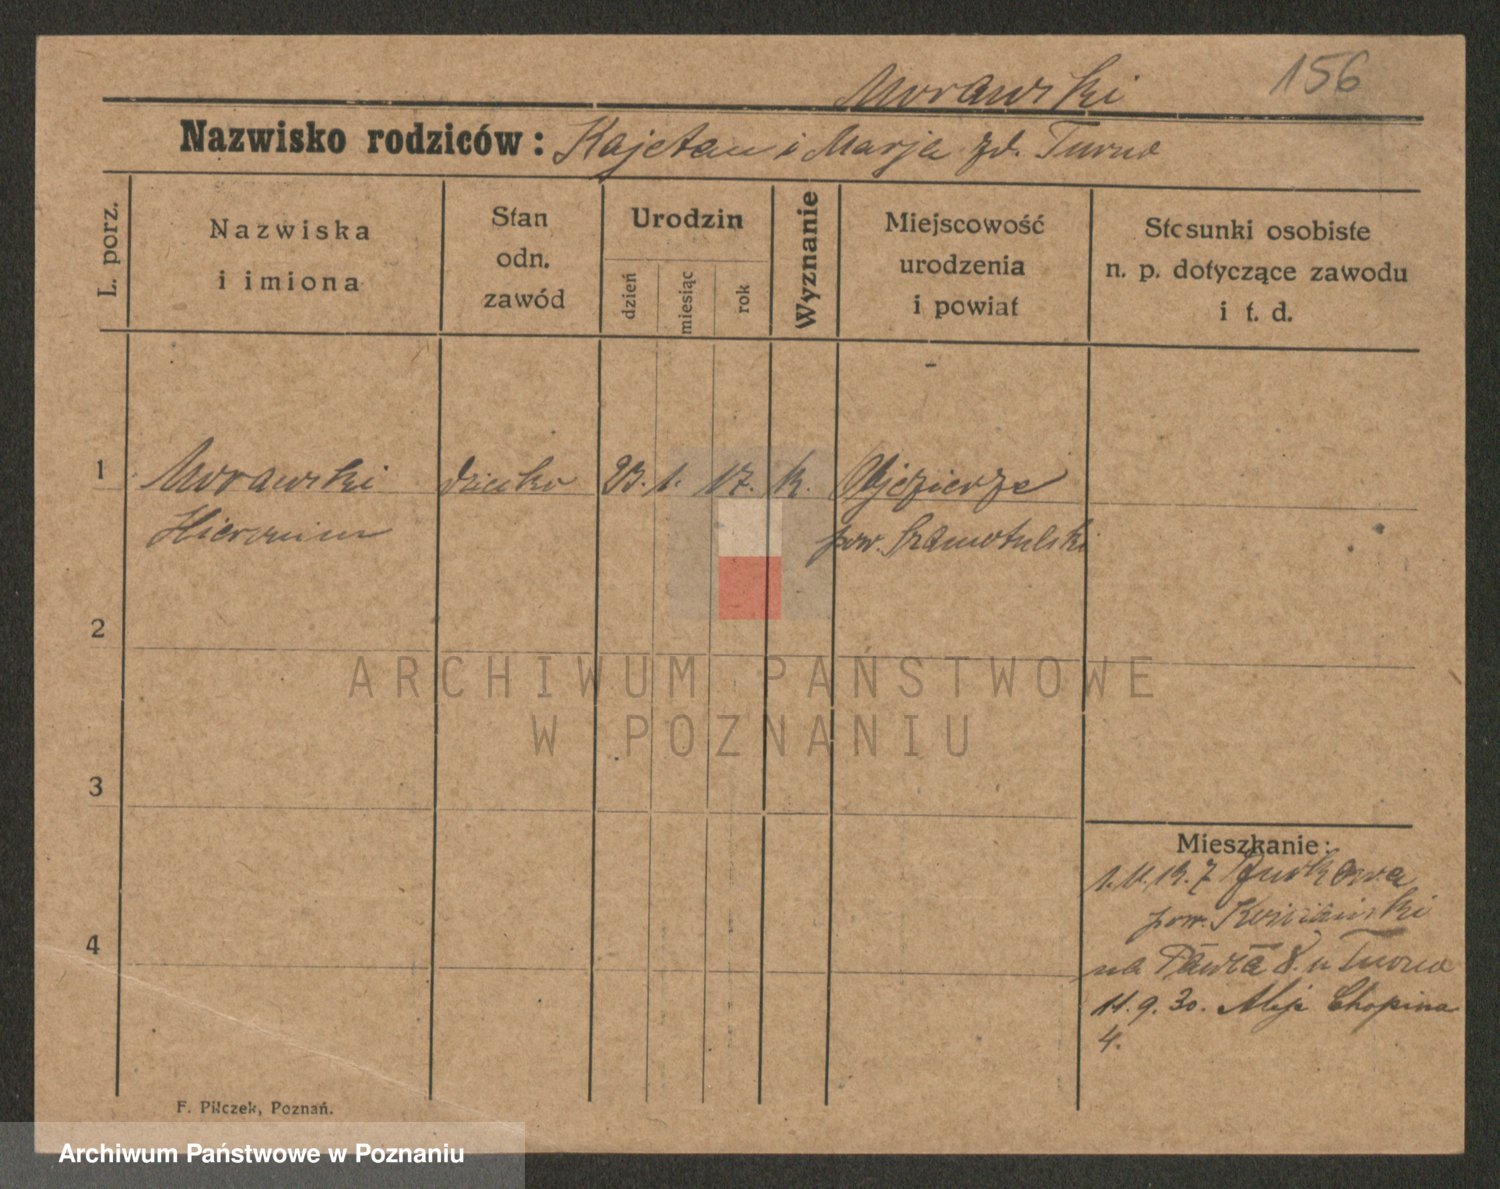 156
Morawski
Nazwisko rodziców: Kajetan i Marja zd. Turno
L. porz.
Nazwiska
i imiona
Stan
odn.
zawód
Urodzin
dzień
miesiąc
rok
Wyznanie
Miejscowość
urodzenia
i powiat
Stosunki osobiste
n. p. dotyczące zawodu
i t. d.
1
Morawski dziecko 23. 1. 17. k. Objezierze
Hieronim pow. Szamotulski
2
ARCHIWUM PAŃSTWOWE
W POZNANIU
3
Mieszkanie:
z Jurkowa
pow. Kościański
4
na Pawła 8. u Turno
11.9.30. Aleje Chopina
4.
F. Pilczek, Poznań.
Archiwum Państwowe w Poznaniu